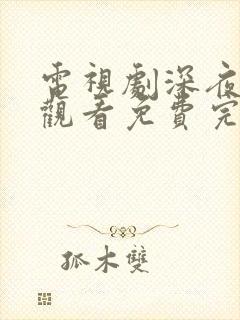 電視劇深夜
觀看免費完
孤木雙